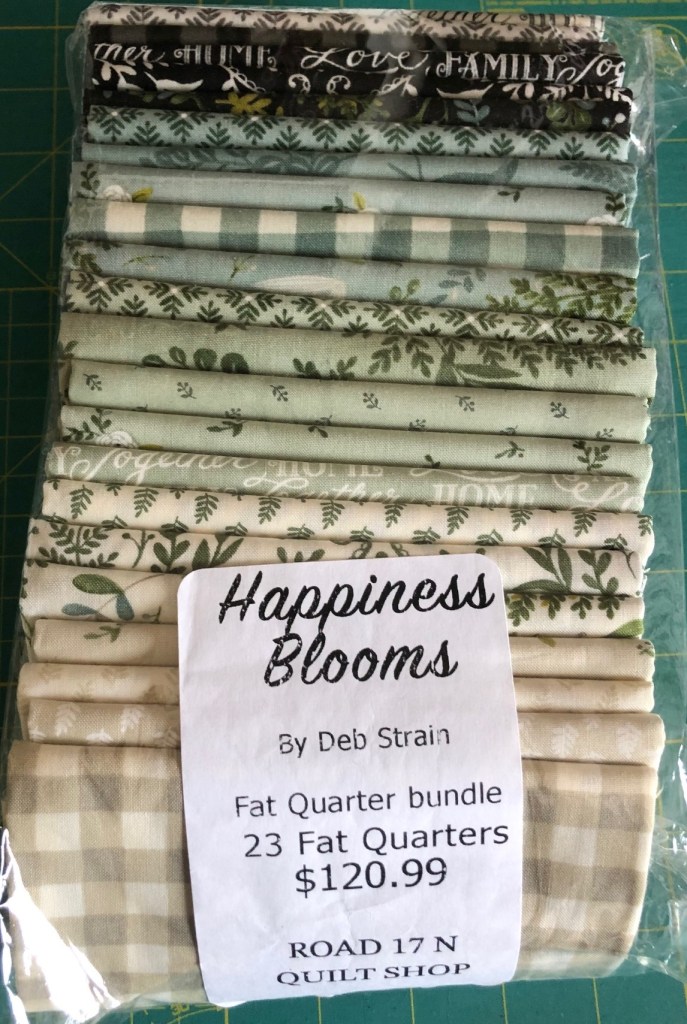 ogether
mer, HOME Love, FAMILY, Tog
Together HOME
Together HOME Lo
Happiness
Blooms
By Deb Strain
Fat Quarter bundle
23 Fat Quarters
$120.99
ROAD 17 N
QUILT SHOP